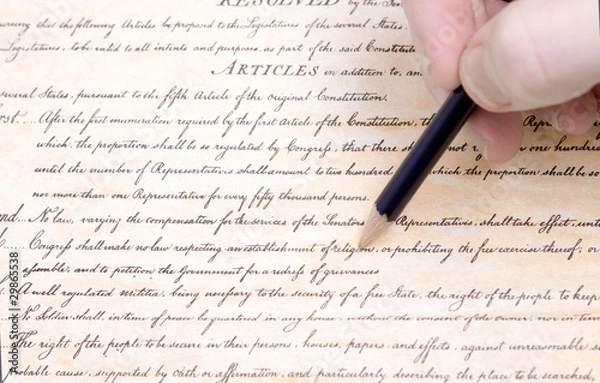 RESOLVED by the Sen
urring that the following Articles be proposed to the Legislatures of the several States.
Legislatures, to be valid to all intents and purposes, as part of the said Constitut
ARTICLES in addition to, an
several States, pursuant to the fifth Article of the original Constitution.
irst.... After the first enumeration required by the first Article of the Constitution, th Repr
which, the proportion shall be so regulated by Congress, that there sh not one hundred
until the number of Representatives shall amount to two hundred which the proportion shall be so
nor more than one Representative for every fifty thousand persons.
nd.... No law, varying the compensation for the services of the Senators Representatives, shall take effect, unti
Congress shall make no law respecting an establishment of religion, or prohibiting the free exercise thereof; or
ssemble, and to petition the Government for a redress of grievances
A well regulated militia, being necessary to the security of a free State, the right of the people to keep
No Soldier shall, in time of peace be quartered in any house without the consent of the owner, nor in time
The right of the people to be secure in their persons, houses, papers, and effects, against unreasonable se
robable cause, supported by oath or affirmation, and particularly describing the place to be searched,
Adobe Stock | #29865538